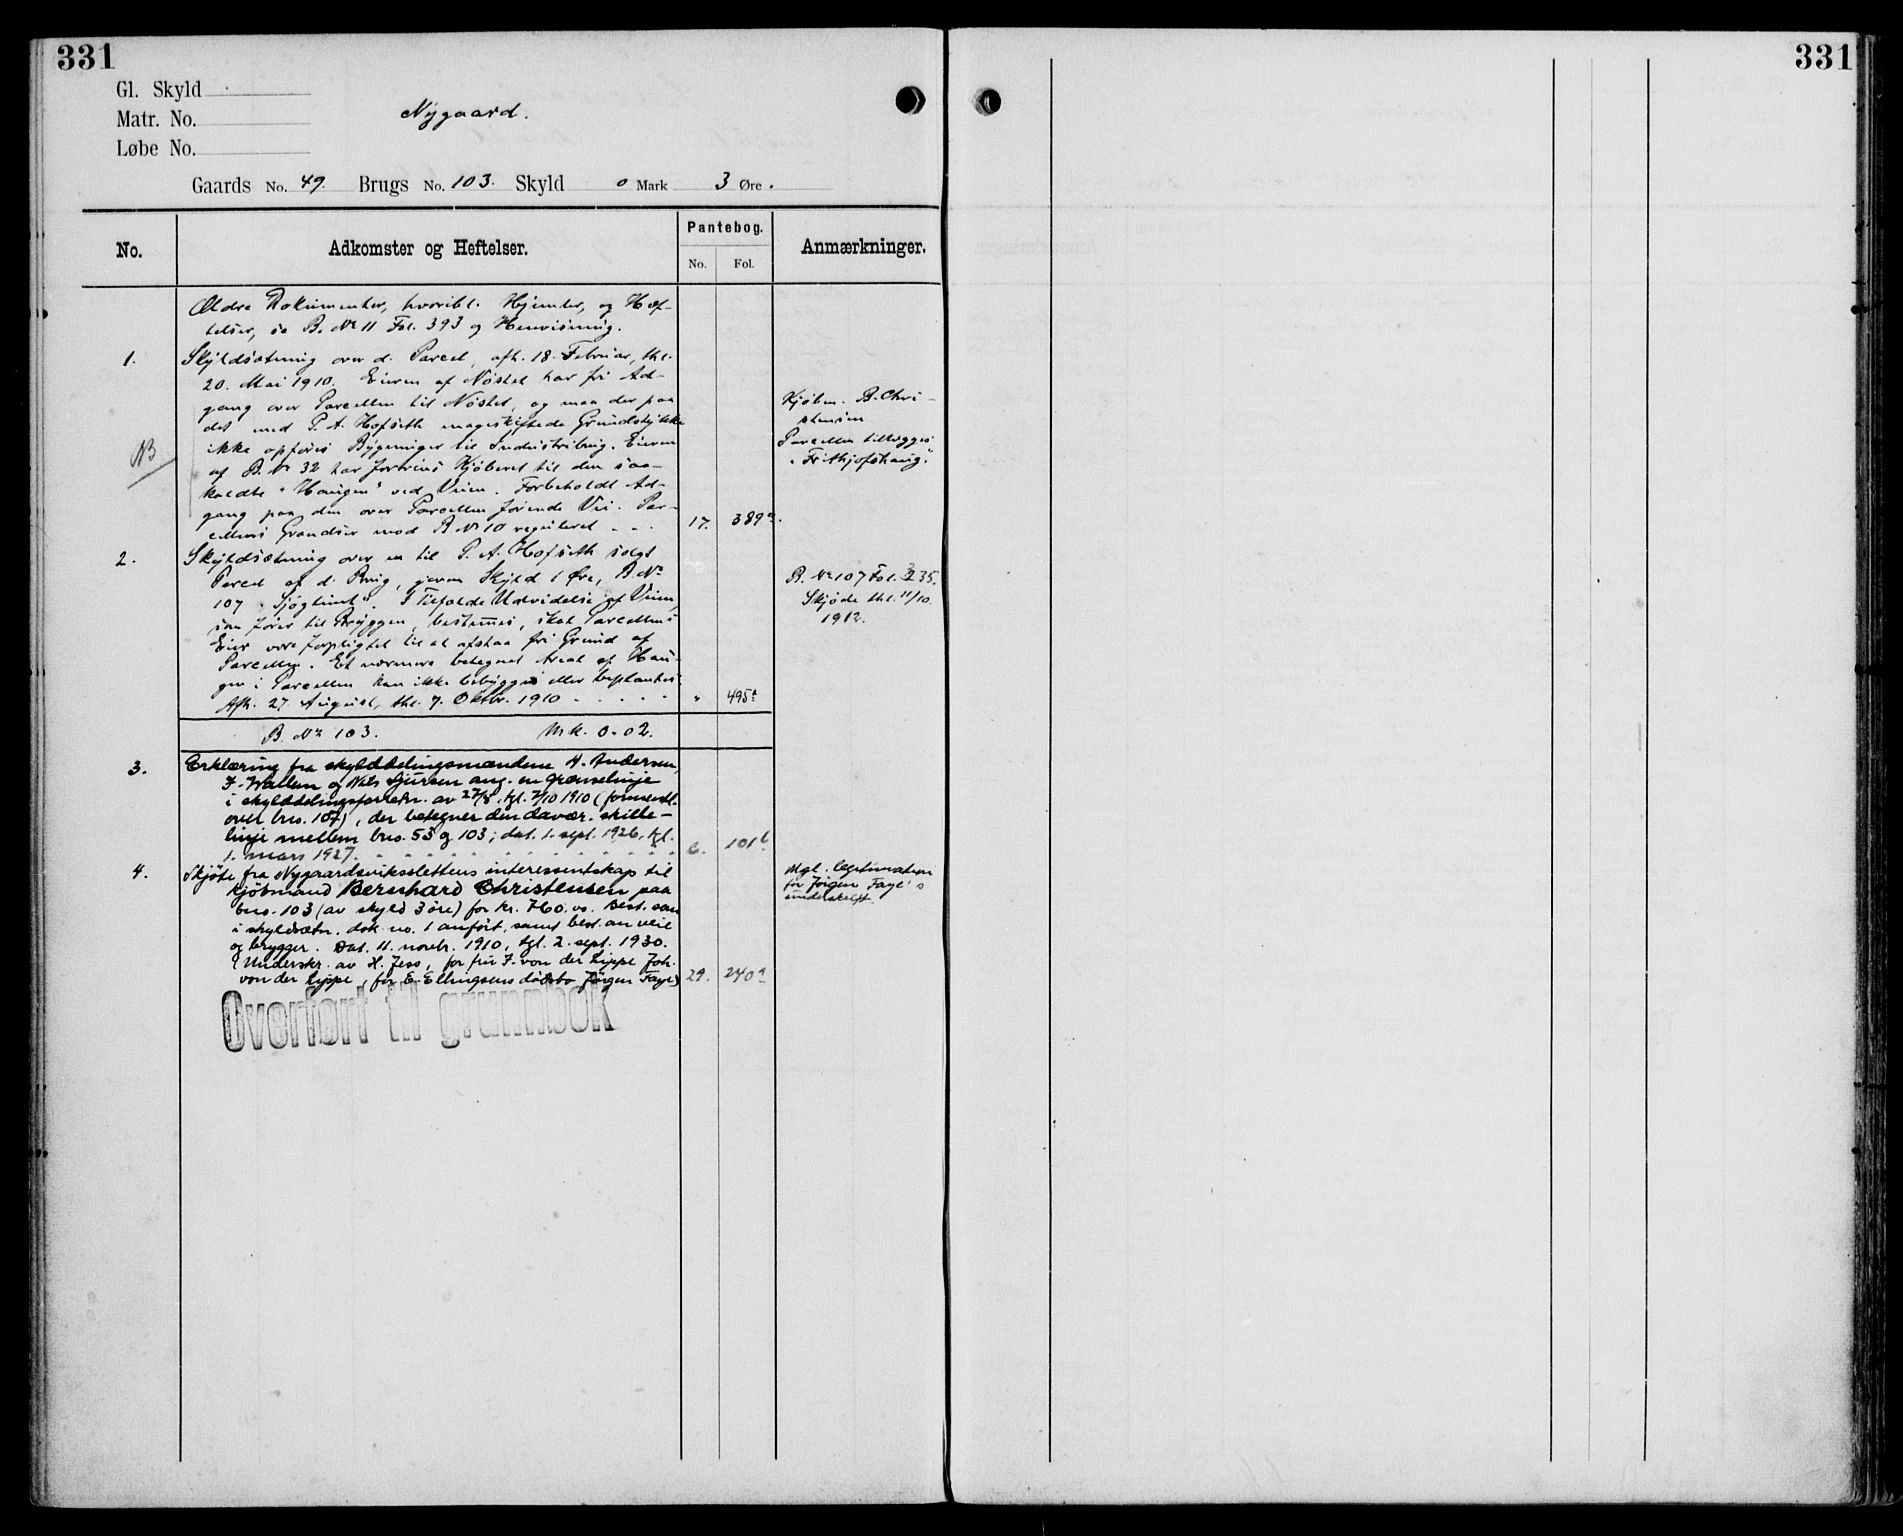 331
331
Gl. Skyld
Matr. No.
Løbe No.
Nygaard.
Gaards No. 49. Brugs No. 103. Skyld 0 Mark 3 Øre.
No.
Adkomster og Heftelser.
Pantebog.
No. Fol.
Anmærkninger.
Ældre Dokumenter, hvoribl. Hjemler, og Hef-
telser, se B. No 11 Fol. 393 og Henvisning.
1. Skyldsætning over d. Parcel, afh. 18. Februar, thl.
20. Mai 1910. Eieren af Nöstet har fri Ad-
gang over Parcellen til Nöstet, og maa der paa
det med P. A. Hofseth mageskiftede Grundstykke
ikke opföres Bygninger til Industribrug. Eieren
NB
af B. No 32 har Kjöberet til den saa-
kaldte "Haugen" ved Veien. Forbeholdt Ad-
gang paa den over Parcellen förende Vei. Par-
cellens Grændser mod B No 10 reguleret - - - 17. 389a.
Kjöbm. B. Chri-
stensen
Parcellen tillægges
"Frithjofshaug".
2. Skyldsætning over en til P. A. Hofseth solgt
Parcel af d. Brug, given Skyld 1 Øre, B. No
107 "Sjöglimt". I Tilfælde Udvidelse af Veien,
som förer til Bryggen, bestemmes, skal Parcellens
Eier være forpligtet til at afstaa fri Grund af
Parcellen. Et nærmere betegnet Areal af Hau-
gen i Parcellen kan ikke bebygges eller beplantes.
Afh. 27. August, thl. 7. Oktbr. 1910 - - - - - " 495a.
B. No 107 Fol. 335.
Skjöde thl. 11/10.
1912.
B. No 103. Mk. 0-02.
3. Erklæring fra skylddelingsmændene A. Andersen,
F. Wallem og Nils Sjursen ang. en grænselinje
i skylddelingsforretn. av 27/8, tgl. 7/10 1910 (formentl.
over brno. 107), der betegner den davær. skille-
linje mellem brno. 53 og 103; dat. 1. sept. 1926, tgl.
1. mars 1927. 6. 101b
4. Skjöte fra Nygaardsvikslettens interessentskap til
kjöbmand Bernhard Christensen paa
brno. 103 (av skyld 3 öre) for kr. 760.00. Best. som
i skyldsætn. dok no. 1 anfört, samt best. an veie
og brygger. Dat. 11. novbr. 1910, tgl. 2. sept. 1930.
(Underskr. av H. Jess, for fru F. von der Lippe Joh.
von der Lippe, for E. Ellingsens dödsbo Jörgen Faye) 29. 240a
Mgl. legitimation
for Jörgen Faye's
underskrift.
Overført til grunnbok